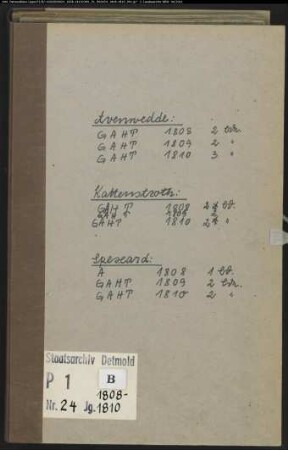 Avenwedde:
GAHT 1808 2 Bde.
GAHT 1809 2 "
GAHT 1810 3 "
Kattenstroth:
GAHT 1808 2 Bd.
1809
GAHT 1810 2 "
Spexard:
A 1808 1 Bd.
GAHT 1809 2 Bde.
GAHT 1810 2 "
Staatsarchiv Detmold
P 1 B 1808-
Nr. 24 Jg. 1810